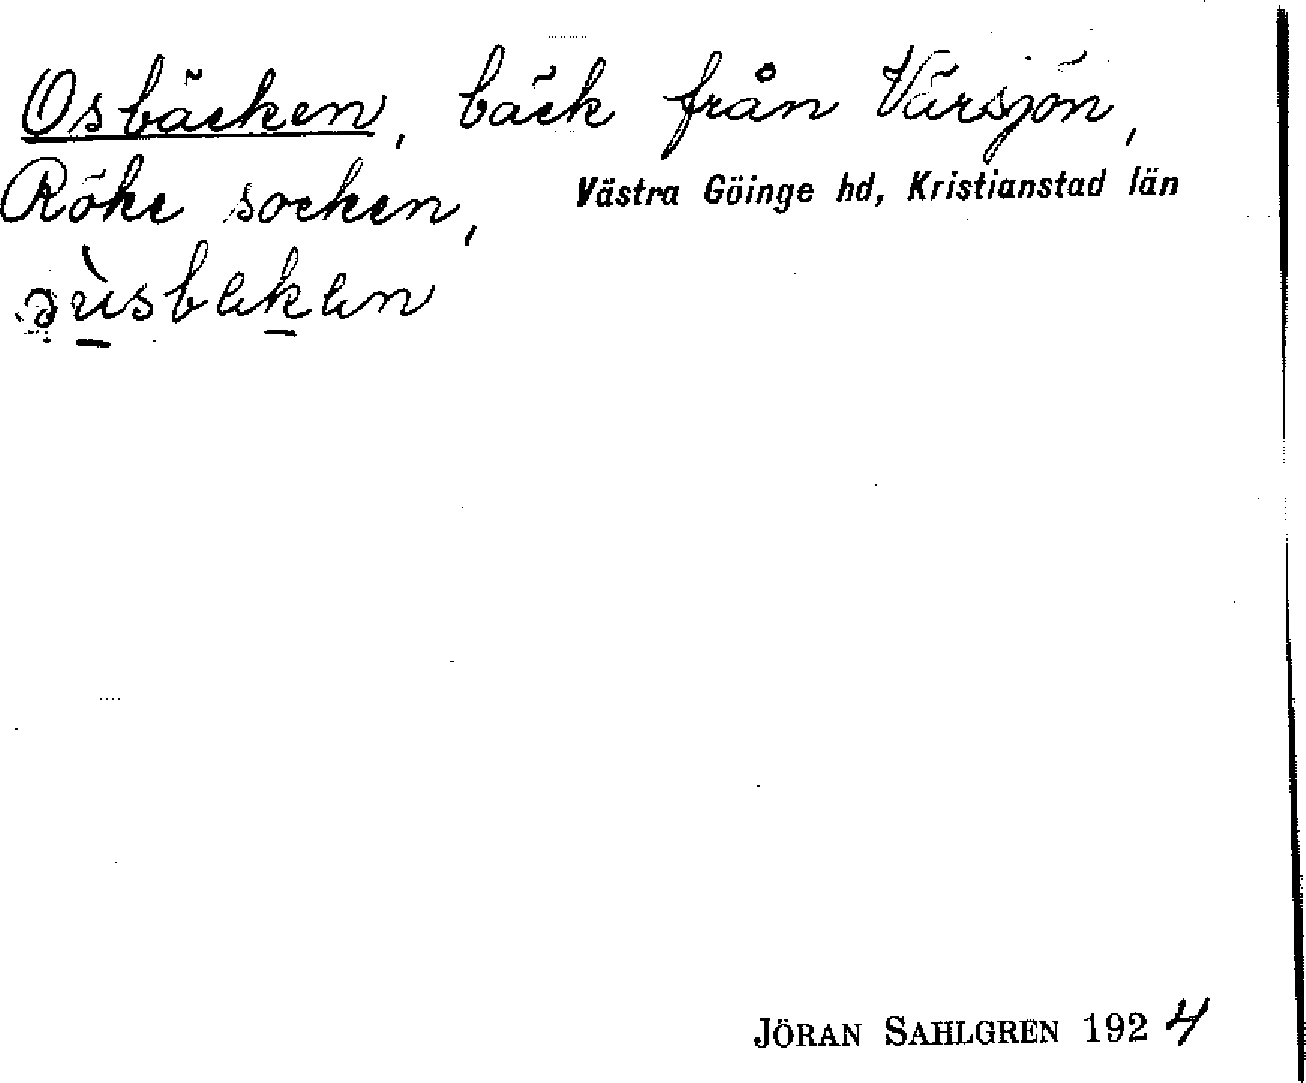 Osbäcken, bäck från Värsjön,
Röke socken, Västra Göinge hd, Kristianstad län
JÖRAN SAHLGREN 1924